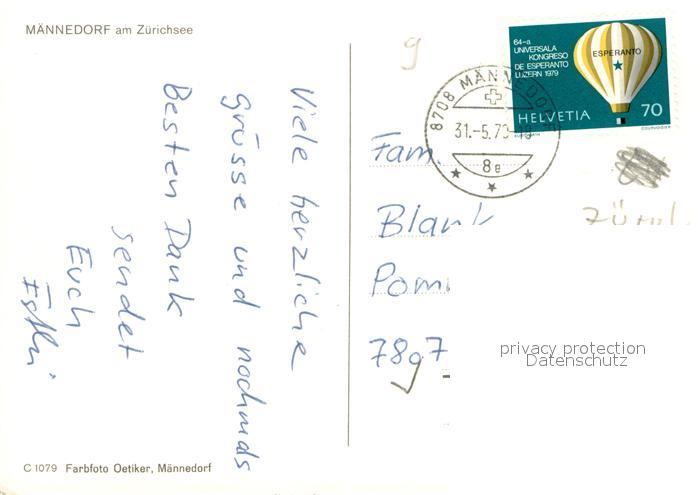 MÄNNEDORF am Zürichsee
Viele herzliche
Grüsse und nochmals
Besten Dank
sendet
Euch
C 1079 Farbfoto Oetiker, Männedorf
64-a
UNIVERSALA
KONGRESO
DE ESPERANTO
LUZERN 1979
ESPERANTO
HELVETIA 70
COURVOISIER
8708 MÄNNEDORF
31.-5.79-18
8e
g
Fam.
Blank
Pom
7897
privacy protection
Datenschutz